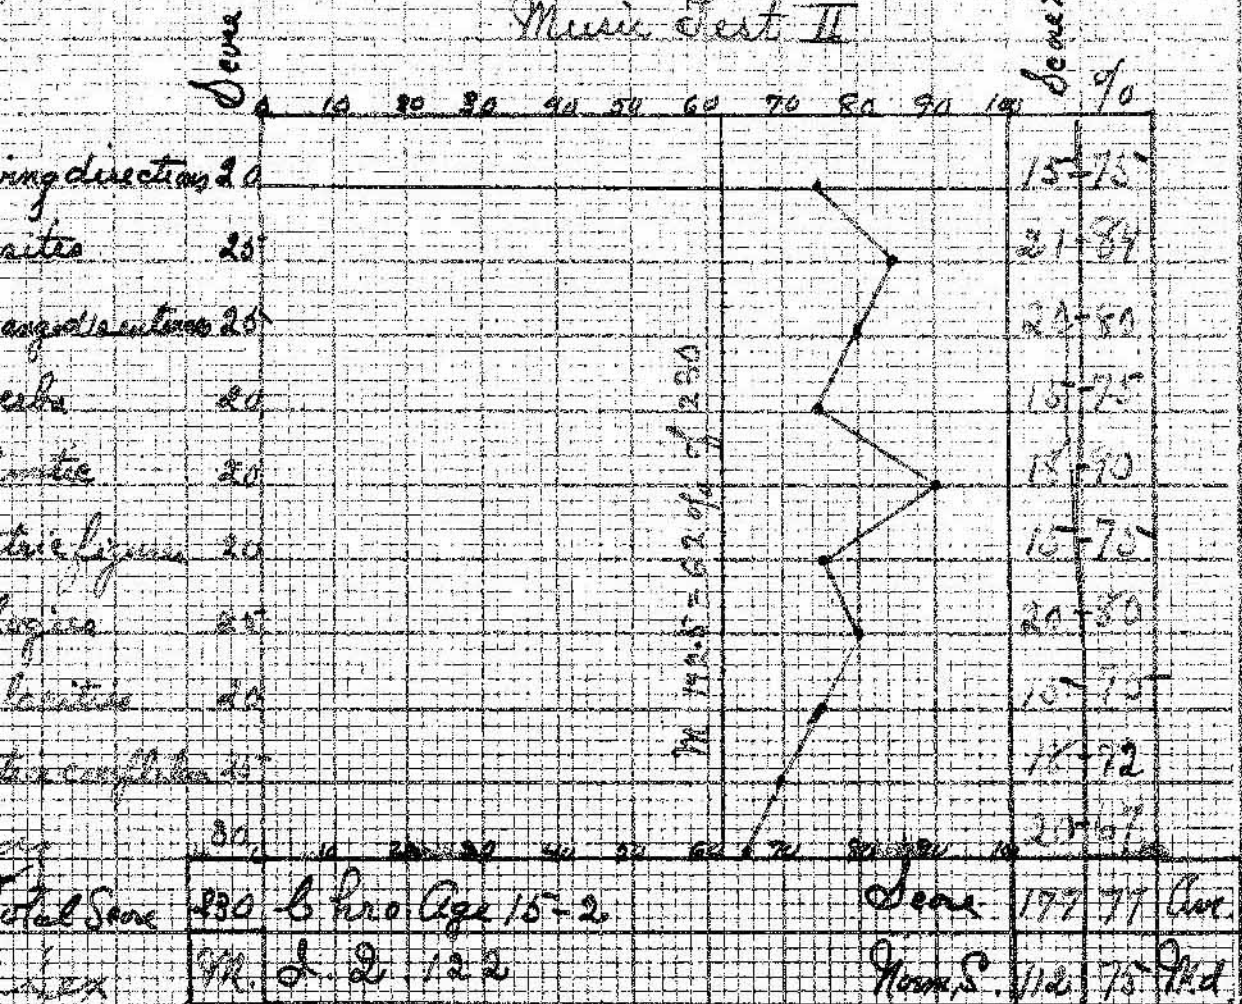 Music Test II
Score
Score
%
0 10 20 30 40 50 60 70 80 90 100
ving directions 20 15-75
sites 25 21-84
anged sentences 25 20-80
erbs 20 15-75
metic 20 18-90
tric figures 20 15-75
logies 25 20-80
larities 20 15-75
completion 25 18-72
30 20-67
M 142.5 = 62% of 230
0 10 20 30 40 50 60 70 80 90 100
otal Score 230 Chro Age 15-2 Score 177 77 Ave.
Sex M. I. Q. 122 Norm, S. 112 75 Md.